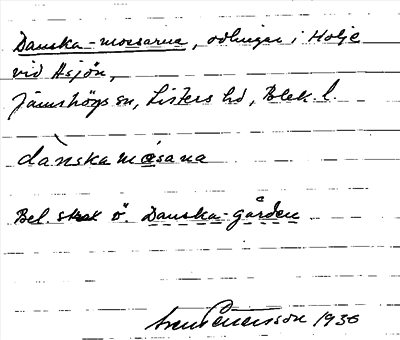 Danska-mossarna, odlingar i Holje
vid Hsjön,
Jämshögs sn, Listers hd, Blek. l.
dànska mosana
Bel. strax ö. Danska-gården
1936